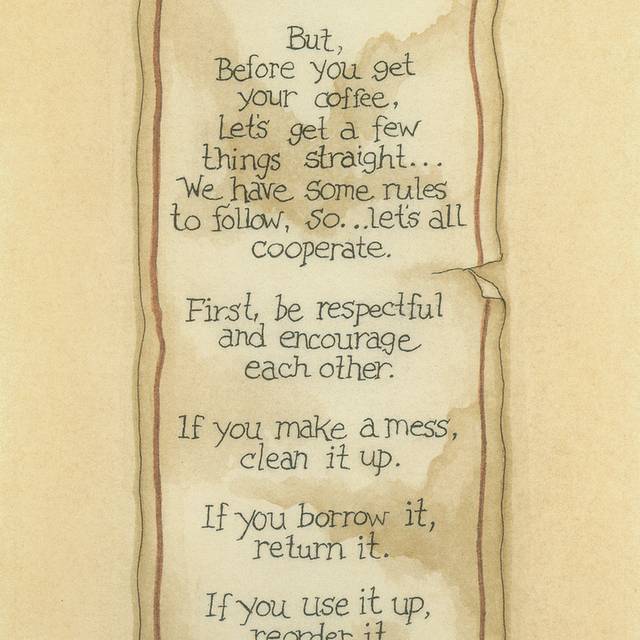 But,
Before you get
your coffee,
Let's get a few
things straight...
We have some rules
to follow, so...let's all
cooperate.
First, be respectful
and encourage
each other.
If you make a mess,
clean it up.
If you borrow it,
return it.
If you use it up,
reorder it.